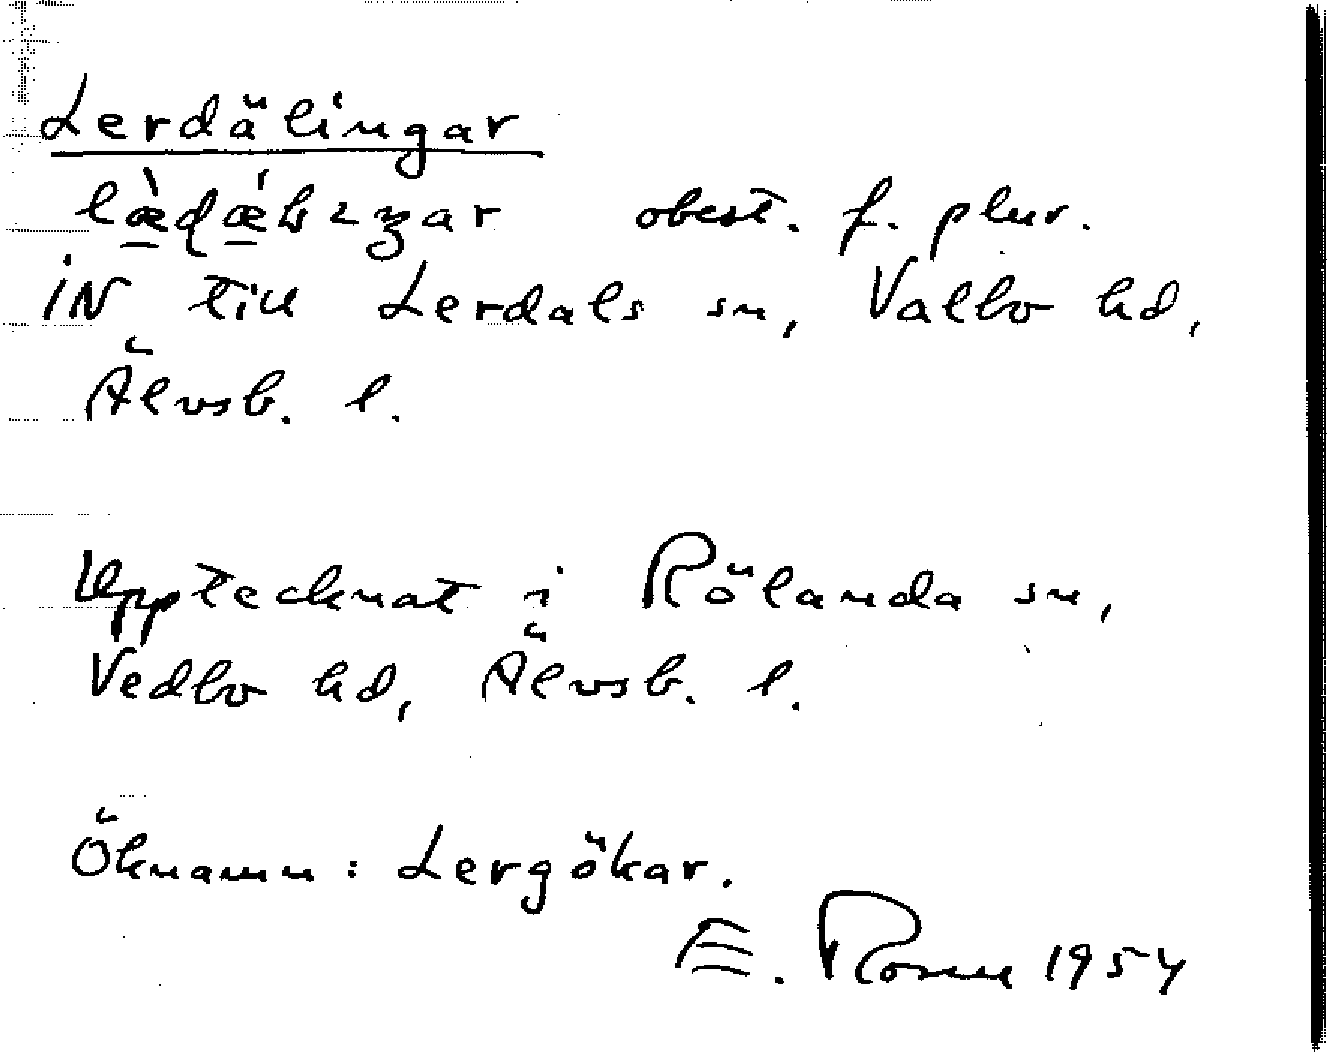 Lerdälingar
obest. f. plur.
iN till Lerdals sn, Valbo hd,
Älvsb. l.
Upptecknat i Rölanda sn,
Vedbo hd, Älvsb. l.
Öknamn: Lergökar.
E. Rosell 1954